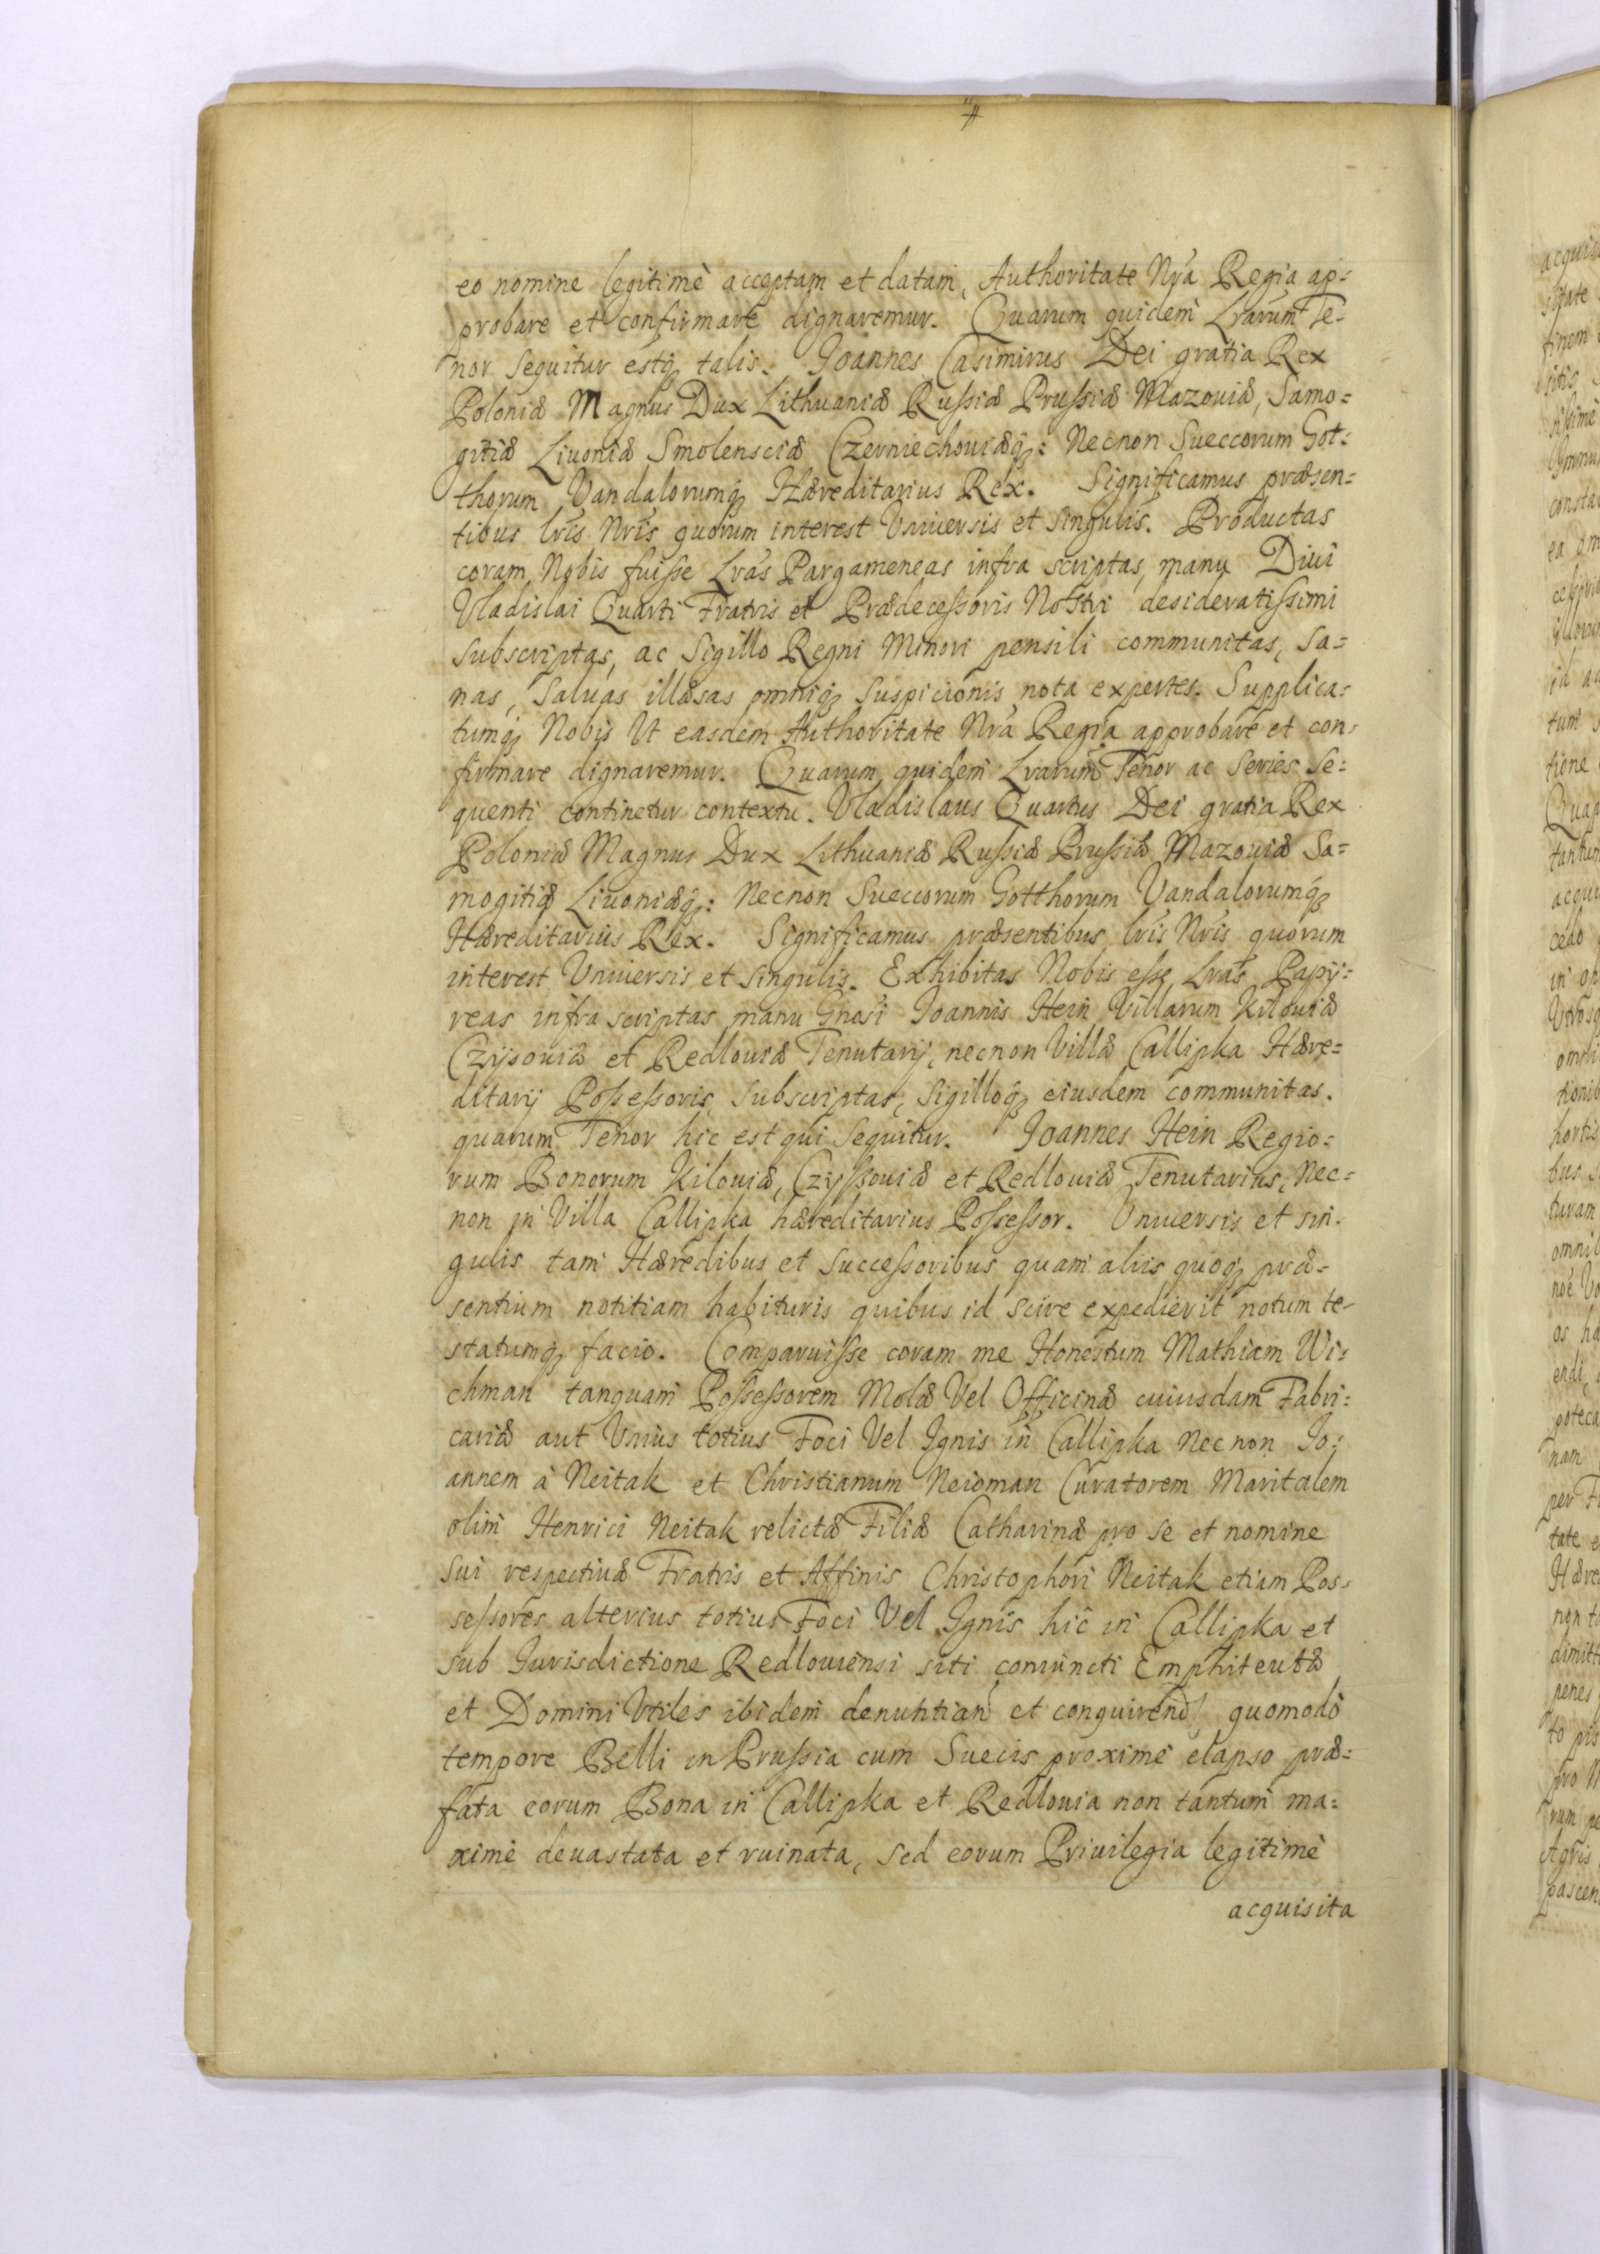 eo nomine legitimè acceptam et datam, Authoritate Nrá Regia ap=
probare et confirmare dignaremur. Quarum quidem Lrarum Te=
nor sequitur estq́ talis. Joannes Casimirus Dei gratia Rex
Poloniæ Magnus Dux Lithuaniæ Rußiæ Prußiæ Mazouiæ, Samo=
gitiæ Liuoniæ Smolensciæ Czerniechouiæq́: Necnon Sueccorum Got=
thorum Vandalorumq́ Hæreditarius Rex. Significamus præsen=
tibus lris Nris quorum interest Vniuersis et singulis. Productas
coram Nobis fuiße Lras Pargameneas infra scriptas, manu Diui
Vladislai Quarti Fratris et Prædeceßoris Nostri desideratißimi
subscriptas, ac Sigillo Regni Minori pensili communitas, sa=
nas, saluas illæsas omniq́ suspicionis nota expertes. Supplica=
tumq́ Nobis Vt easdem Authoritate Nrá Regia approbare et con=
firmare dignaremur. Quarum quidem Lrarum Tenor ac series se=
quenti continetur contextu. Vladislaus Quartus Dei gratia Rex
Poloniæ Magnus Dux Lithuaniæ Rußiæ Prußiæ Mazouiæ Sa=
mogitiæ Liuoniæq́: Necnon Sueccorum Gotthorum Vandalorumq́
Hæreditarius Rex. Significamus præsentibus lris Nris quorum
interest Vniuersis et singulis. Exhibitas Nobis eße Lras Papy=
reas infra scriptas manu Gnosi Joannis Hein Villarum Kilouiæ
Czysouiæ et Redlouiæ Tenutarij, necnon Villæ Callipka Hære=
ditarij Poßeßoris, subscriptas, sigilloq́ eiusdem communitas.
quarum Tenor hic est qui sequitur. Joannes Hein Regio=
rum Bonorum Kilouiæ, Czyßouiæ et Redlouiæ Tenutarius, nec=
non in Villa Callipka hæreditarius Poßeßor. Vniuersis et sin=
gulis tam Hæredibus et succeßoribus quam aliis quoq́ præ=
sentium notitiam habituris quibus id scire expedierit notum te=
statumq́ facio. Comparuiße coram me Honestum Mathiam Wi=
chman tanquam Poßeßorem Molæ Vel Officinæ cuiusdam Fabri=
cariæ aut Vnius totius Foci Vel Ignis in Callipka necnon Jo=
annem à Neitak et Christianum Neioman Curatorem Maritalem
olim Henrici Neitak relictæ Filiæ Catharinæ pro se et nomine
sui respectiuæ Fratris et Affinis Christophori Neitak etiam Pos=
seßores alterius totius Foci Vel Ignis hic in Callipka et
sub Jurisdictione Redlouiensi siti coniuncti Emphiteutæ
et Domini Vtiles ibidem denuntian et conquirend quomodo
tempore Belli in Prußia cum Suecis proximè elapso præ=
fata eorum Bona in Callipka et Redlouia non tantum ma=
ximè deuastata et ruinata, sed eorum Priuilegia legitimè
acquisita